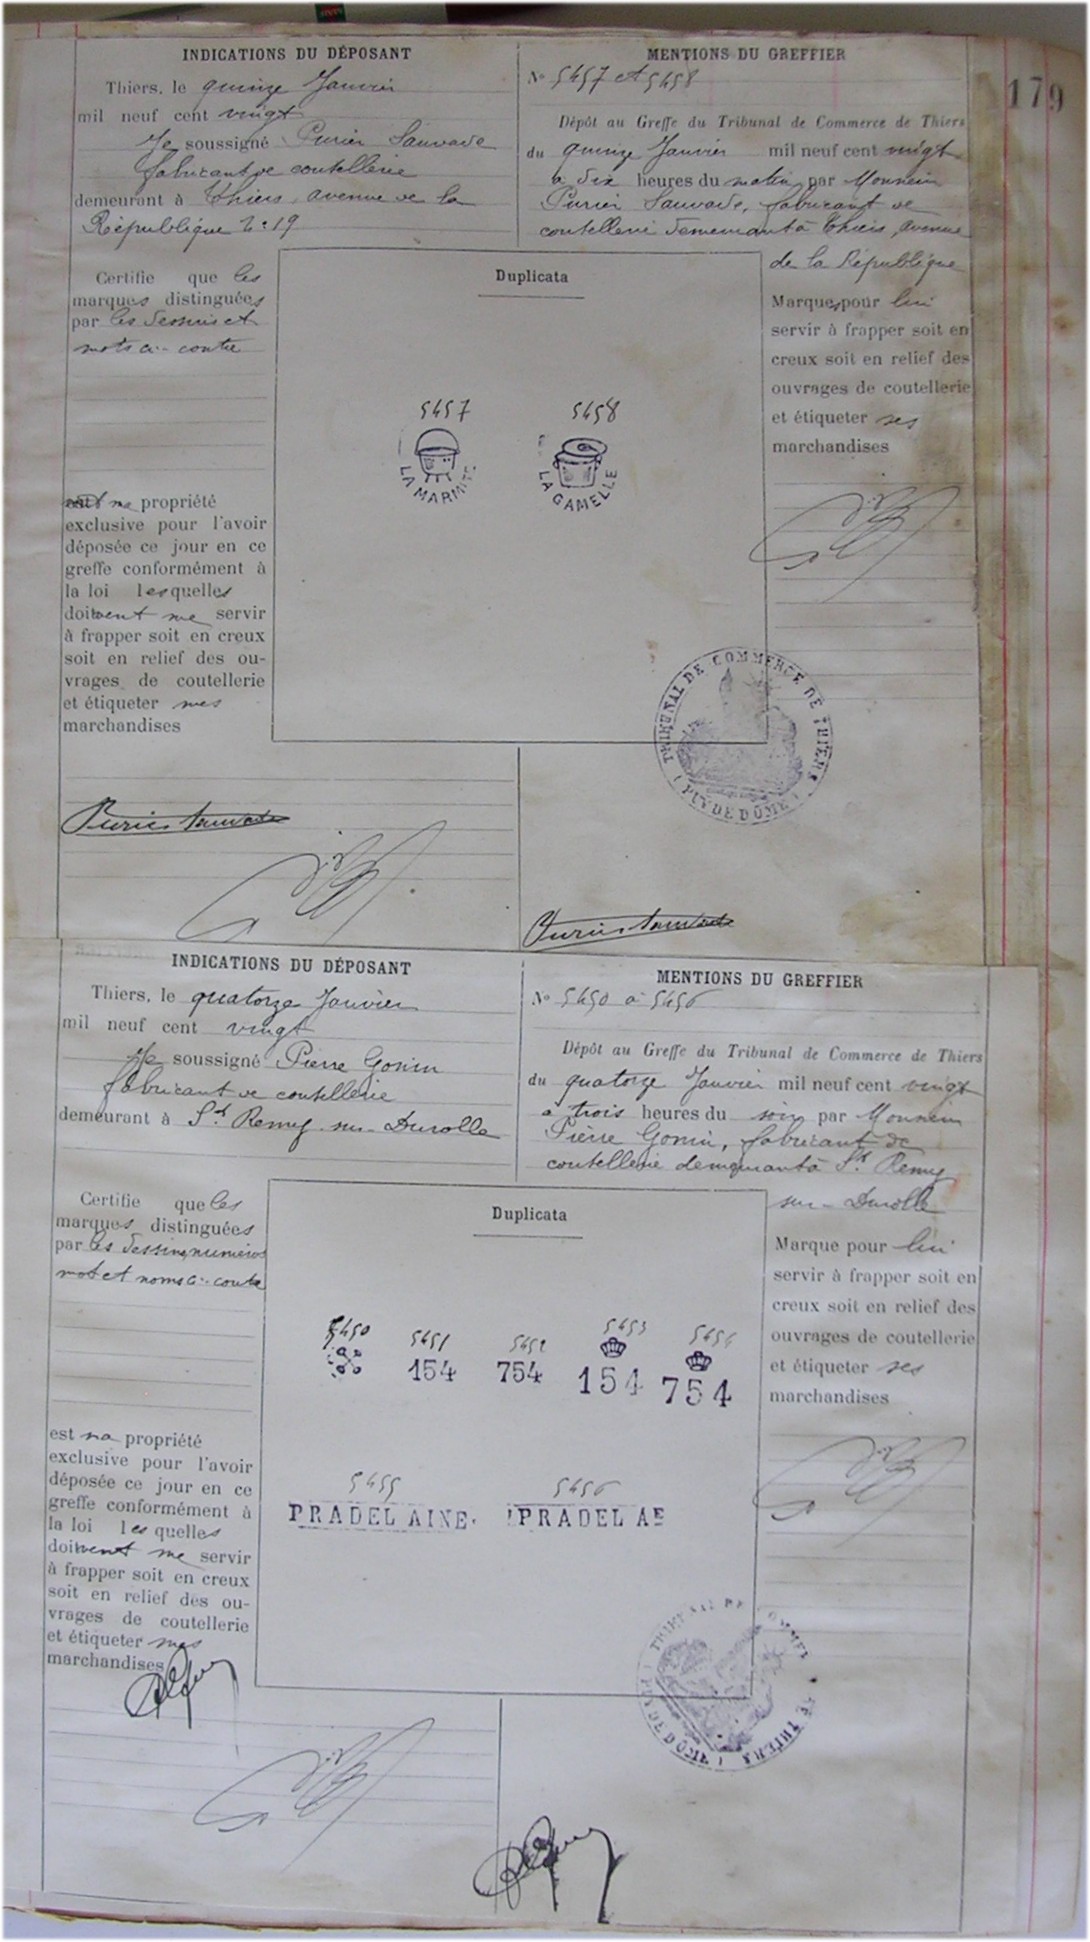 179
INDICATIONS DU DÉPOSANT
Thiers, le quinze Janvier
mil neuf cent vingt
Je soussigné Purier Sauvade
fabricant de coutellerie
demeurant à Thiers, avenue de la
République N° 19
Certifie que les
marques distinguées
par les dessins et
mots ci-contre
sont ma propriété
exclusive pour l'avoir
déposée ce jour en ce
greffe conformément à
la loi lesquelles
doivent me servir
à frapper soit en creux
soit en relief des ou-
vrages de coutellerie
et étiqueter mes
marchandises
Purier Sauvade
MENTIONS DU GREFFIER
N° 5457 et 5458
Dépôt au Greffe du Tribunal de Commerce de Thiers
du quinze Janvier mil neuf cent vingt
à dix heures du matin par Monsieur
Purier Sauvade, fabricant de
coutellerie demeurant à Thiers, avenue
de la République
Marques pour lui
servir à frapper soit en
creux soit en relief des
ouvrages de coutellerie
et étiqueter ses
marchandises
Duplicata
5457 5458
LA MARMITE LA GAMELLE
TRIBUNAL DE COMMERCE DE THIERS
(PUY DE DÔME)
Purier Sauvade
INDICATIONS DU DÉPOSANT
Thiers, le quatorze Janvier
mil neuf cent vingt
Je soussigné Pierre Gonin
fabricant de coutellerie
demeurant à St Remy-sur-Durolle
Certifie que les
marques distinguées
par les dessins, numéros
mot et noms ci-contre
est ma propriété
exclusive pour l'avoir
déposée ce jour en ce
greffe conformément à
la loi lesquelles
doivent me servir
à frapper soit en creux
soit en relief des ou-
vrages de coutellerie
et étiqueter mes
marchandises
MENTIONS DU GREFFIER
N° 5450 à 5456
Dépôt au Greffe du Tribunal de Commerce de Thiers
du quatorze Janvier mil neuf cent vingt
à trois heures du soir par Monsieur
Pierre Gonin, fabricant de
coutellerie demeurant à St Remy
sur-Durolle
Marque pour lui
servir à frapper soit en
creux soit en relief des
ouvrages de coutellerie
et étiqueter ses
marchandises
Duplicata
5450 5451 5452 5453 5454
154 754 154 754
5455 5456
PRADEL AINE PRADEL AE
TRIBUNAL DE COMMERCE DE THIERS
(PUY DE DÔME)